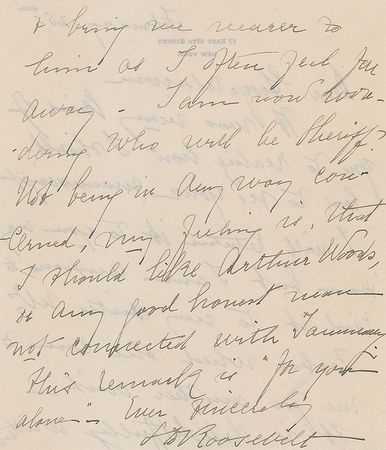 & bring me nearer to
him as I often feel far
away - I am now won-
dering who will be Sheriff?
Not being in any way con-
-cerned, my feeling is, that
I should like Arthur Woods,
or any good honest man
not connected with Tammany
this remark is "for you
alone" - Ever Sincerely
S D Roosevelt
47 EAST 65TH STREET
NEW YORK